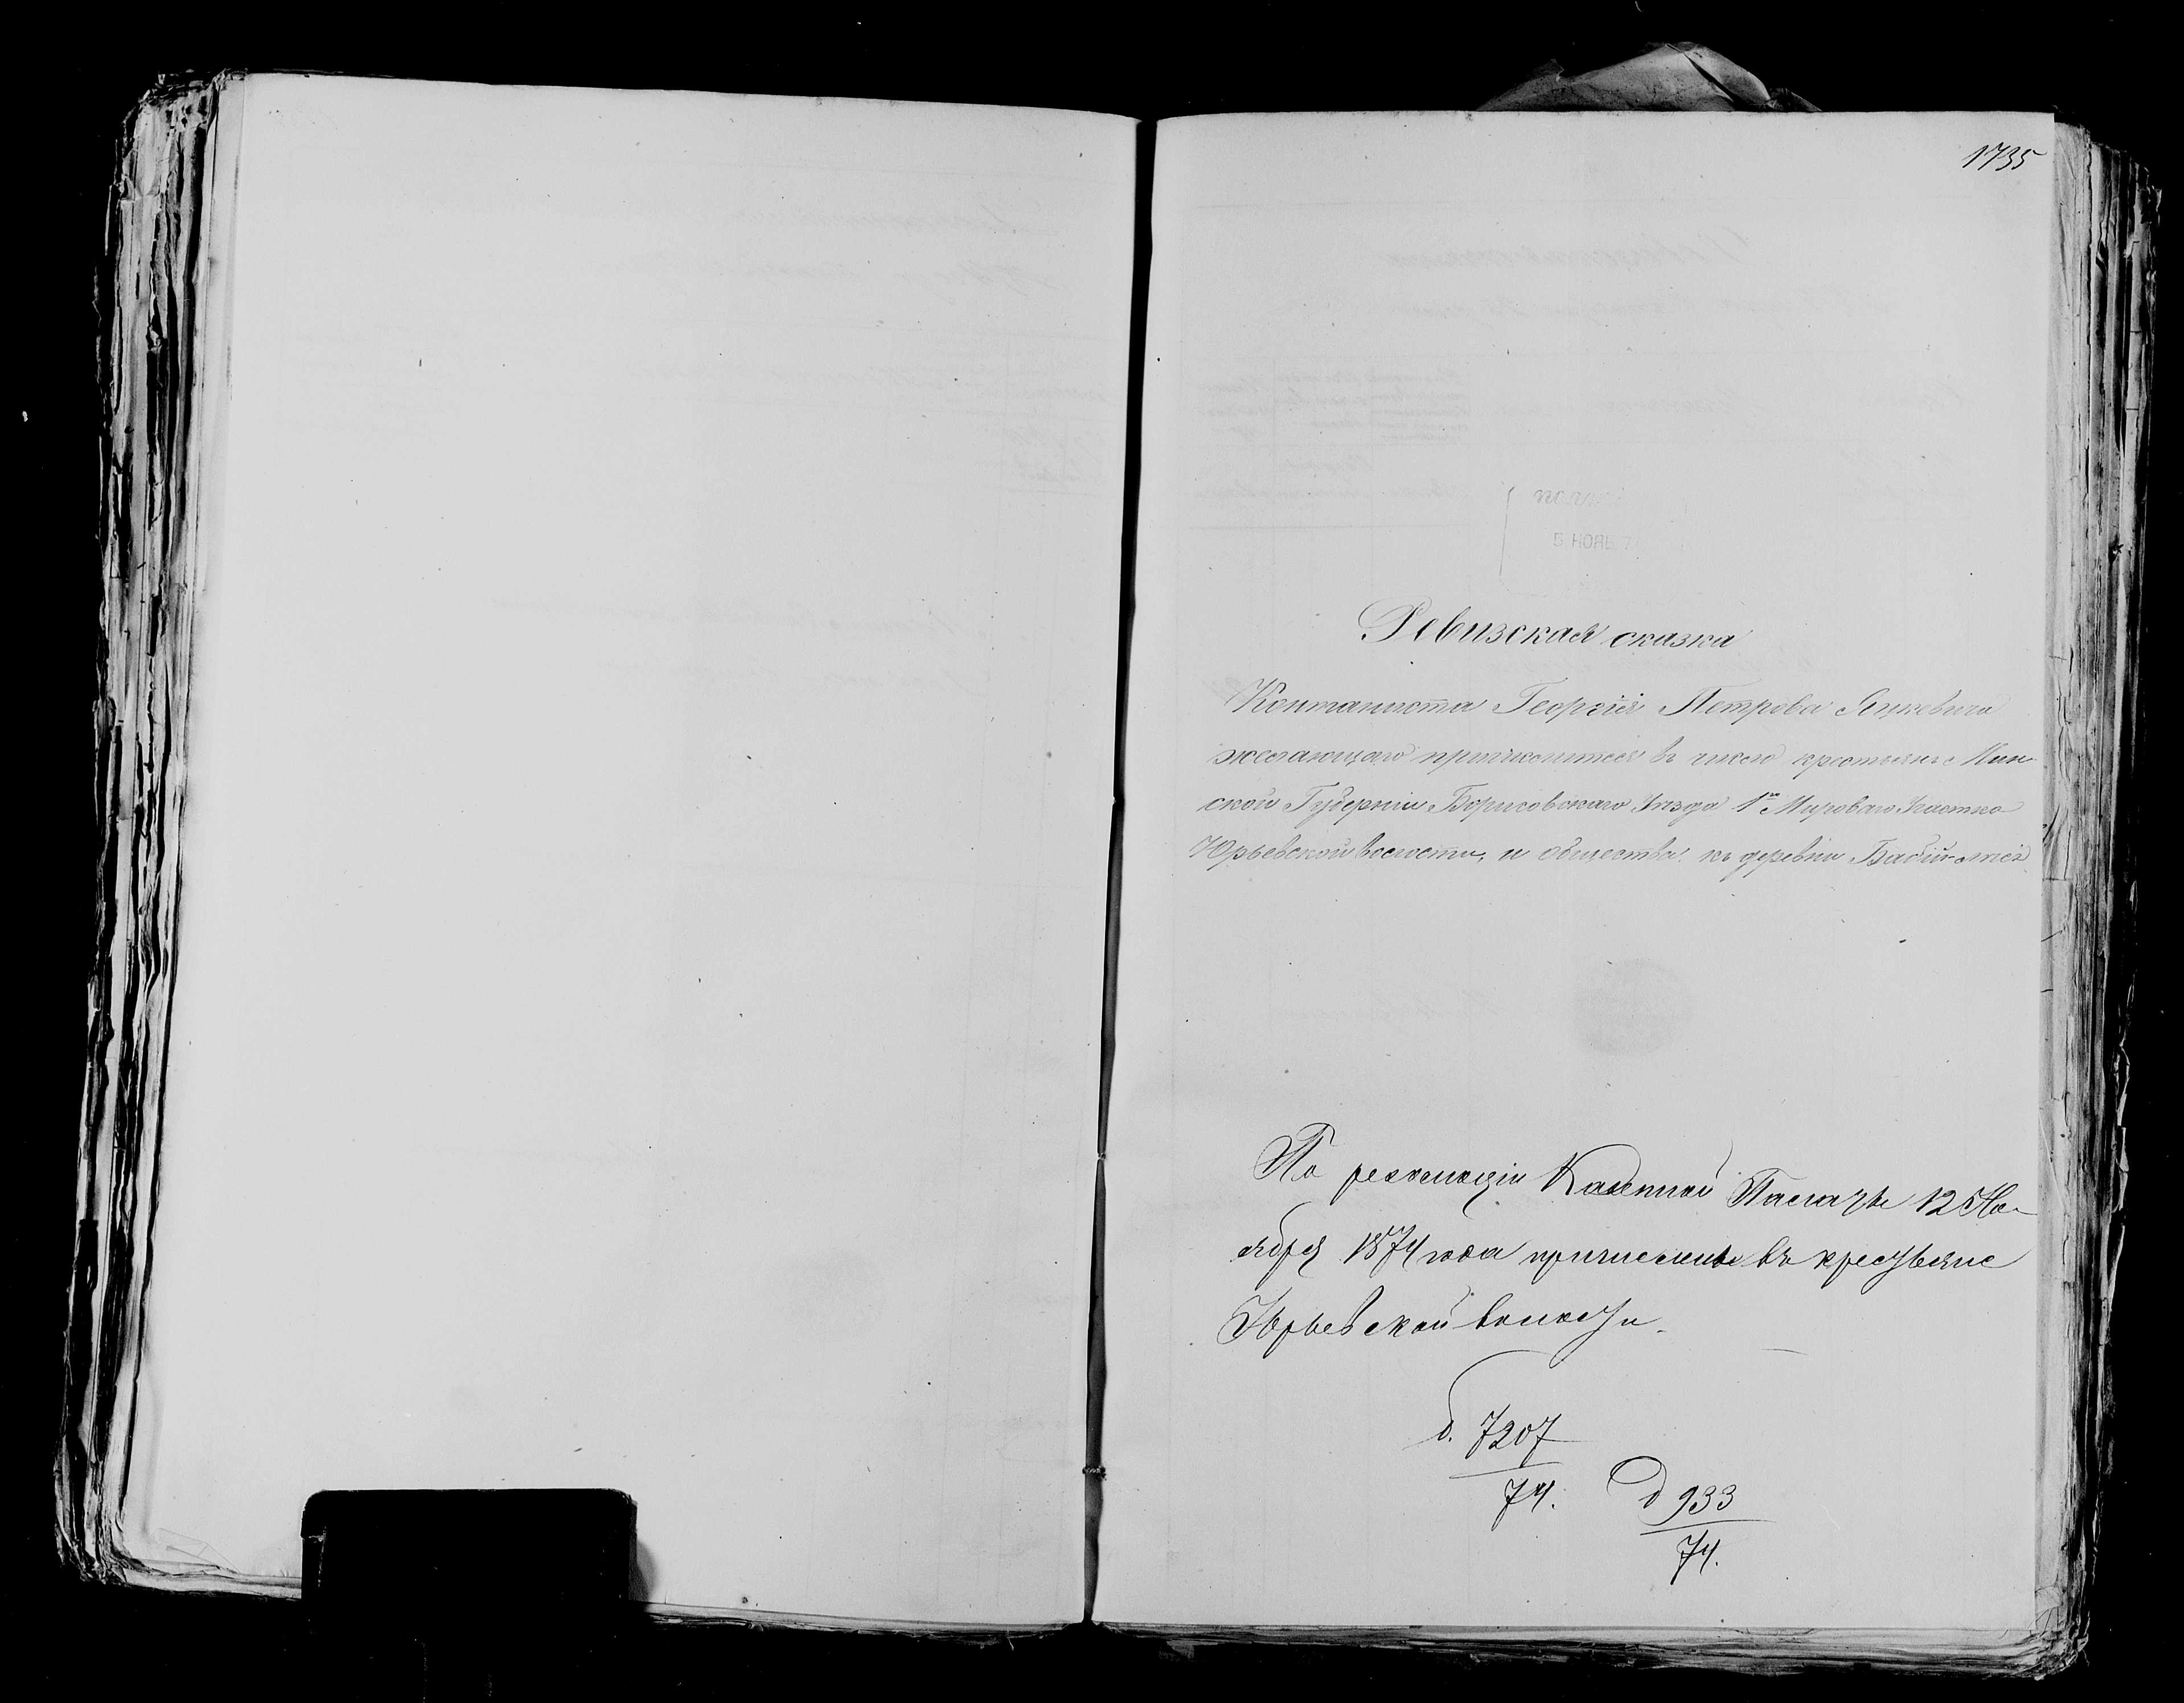 1735
5 НОЯБ 7
Ревизская сказка
Контаниста Георгія Петрова Яцкевича
желающаго причислится въ число крестьянъ Мин-
ской Губерніи Борисовскаго Уѣзда 1го Мироваго Участка
Юрьевской волости, и общества къ деревни
По резолюціи Казенной Палаты 12 Но-
ября 1874 года причислены въ крестьяне
Юрьевской волости.
д. 7207
74.
д 933
74.